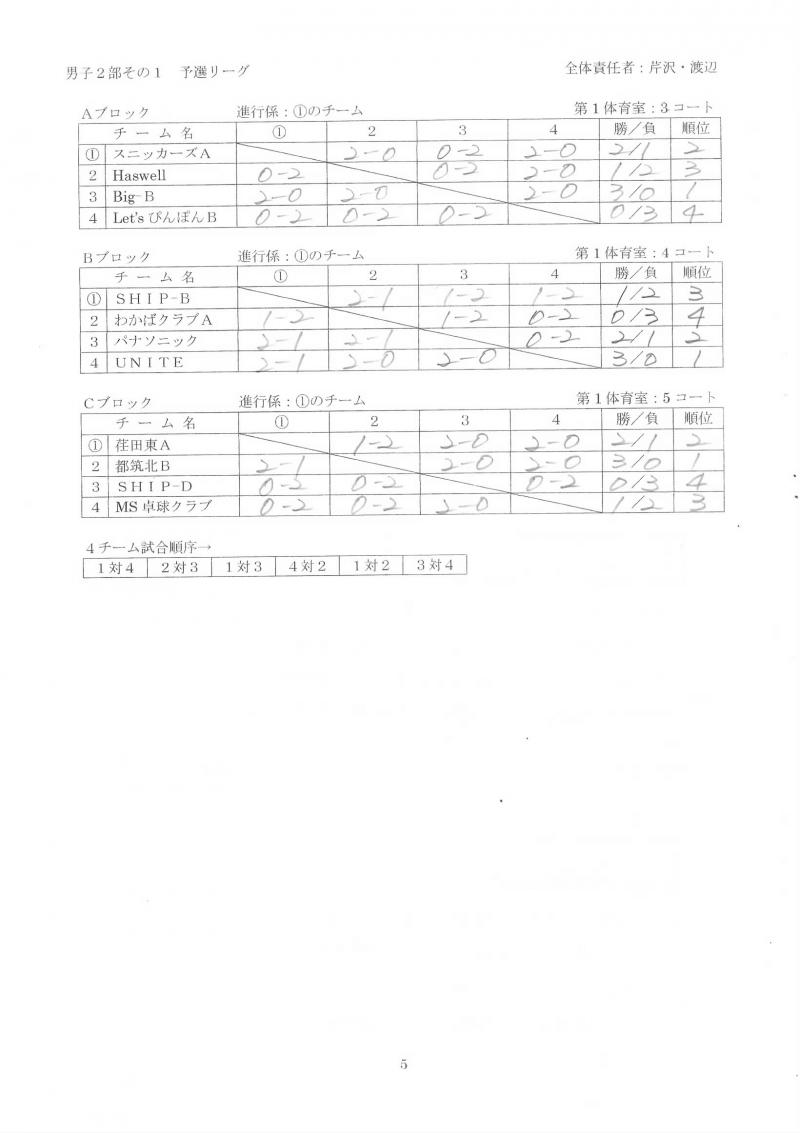 男子２部その１　予選リーグ　全体責任者：芹沢・渡辺
Ａブロック　進行係：①のチーム　第１体育室：３コート
チーム名　①　2　3　4　勝／負　順位
①　スニッカーズA　2-0　0-2　2-0　2/1　2
2　Haswell　0-2　0-2　2-0　1/2　3
3　Big-B　2-0　2-0　2-0　3/0　1
4　Let'sぴんぽんB　0-2　0-2　0-2　0/3　4
Ｂブロック　進行係：①のチーム　第１体育室：４コート
チーム名　①　2　3　4　勝／負　順位
①　ＳＨＩＰ-Ｂ　2-1　1-2　1-2　1/2　3
2　わかばクラブA　1-2　1-2　0-2　0/3　4
3　パナソニック　2-1　2-1　0-2　2/1　2
4　ＵＮＩＴＥ　2-1　2-0　2-0　3/0　1
Ｃブロック　進行係：①のチーム　第１体育室：５コート
チーム名　①　2　3　4　勝／負　順位
①　荏田東A　1-2　2-0　2-0　2/1　2
2　都筑北B　2-1　2-0　2-0　3/0　1
3　ＳＨＩＰ-Ｄ　0-2　0-2　0-2　0/3　4
4　MS卓球クラブ　0-2　0-2　2-0　1/2　3
４チーム試合順序→
１対４　２対３　１対３　４対２　１対２　３対４
5